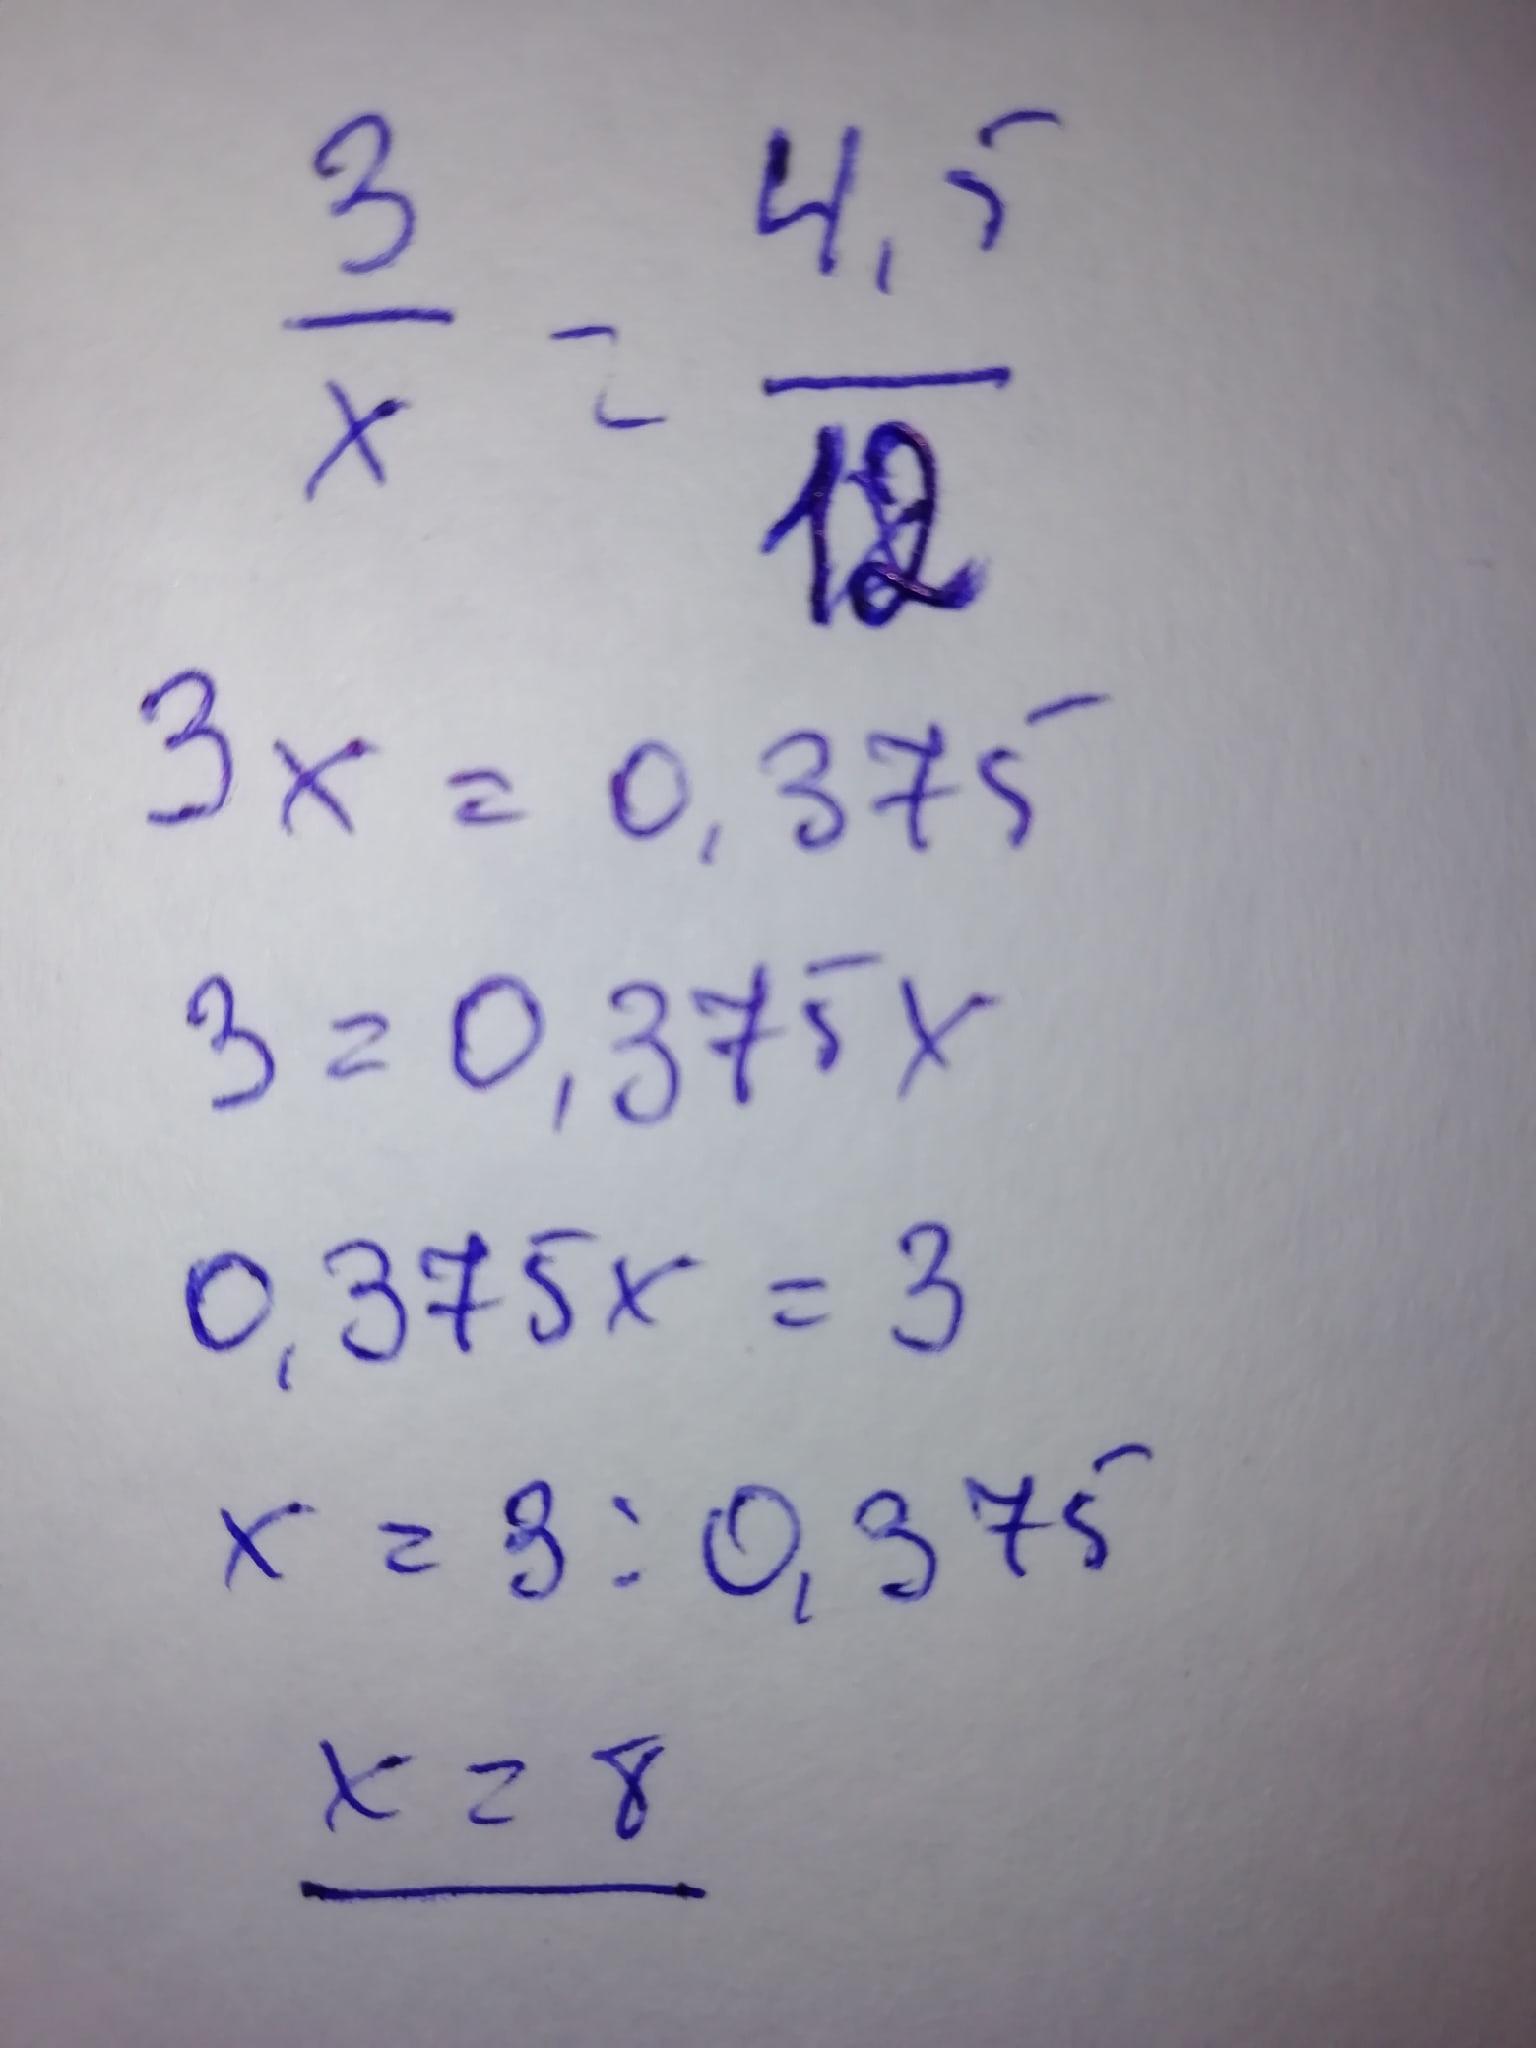 3/x = 4,5/12
3x = 0,375
3 = 0,375x
0,375x = 3
x = 3 : 0,375
x = 8